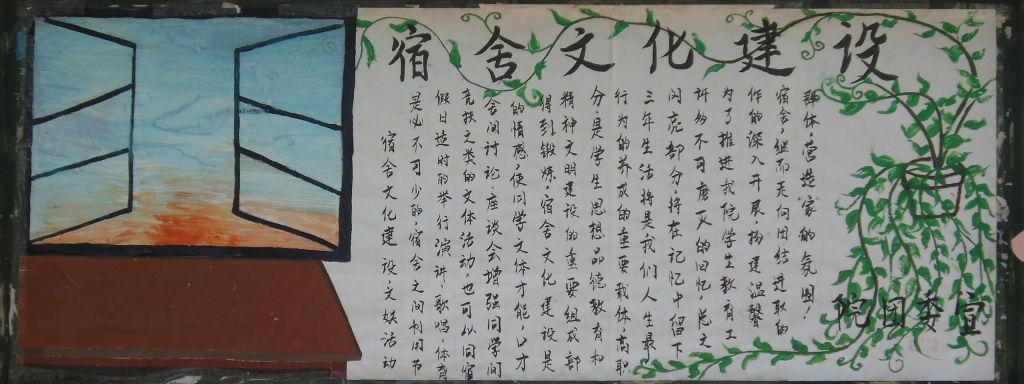 宿舍文化建设
宿舍文化建设、文娱活动
是必不可少的宿舍之间利用节
假日适时的举行演讲、歌唱、体育
竞技之类的文体活动,也可以同宿
舍间讨论、座谈会增强同学间
的情感,使同学文体才能,口才
得到锻炼。宿舍文化建设是
精神文明建设的重要组成部
分是学生思想品德教育和
行为的养成的重要载体。高职
三年生活将是我们人生最
闪亮部分,将在记忆中留下
许多不可磨灭的回忆,总之
为了推进我院学生教育工
作的深入开展,构建温馨
宿舍,继而走向团结进取的
群体,营造"家"的氛围!
院团委宣